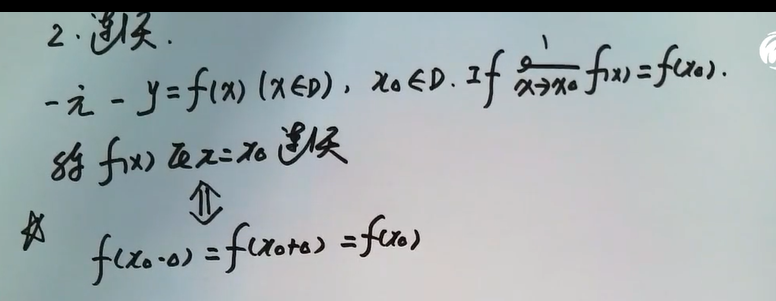 2. 连续.
一元 - y=f(x) (x∈D), x₀∈D. If lim x→x₀ f(x)=f(x₀).
称 f(x) 在 x=x₀ 连续
⇕
☆ f(x₀-0)=f(x₀+0)=f(x₀)